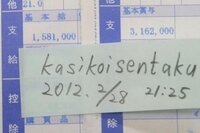 21.0
基本給
基本賞与
他
支
給
控
除
1,581,000
3,162,000
kasikoisentaku
2012. 2/28 21:25